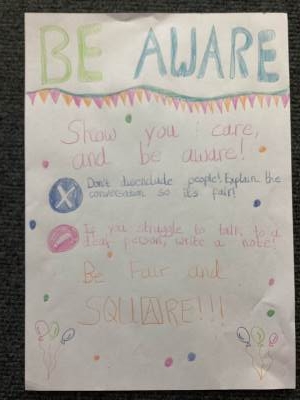 BE AWARE
Show you care,
and be aware!
Don't disclude people! Explain the
conversation so it's fair!
If you struggle to talk to a
Deaf person, write a note!
Be Fair and
SQUARE!!!